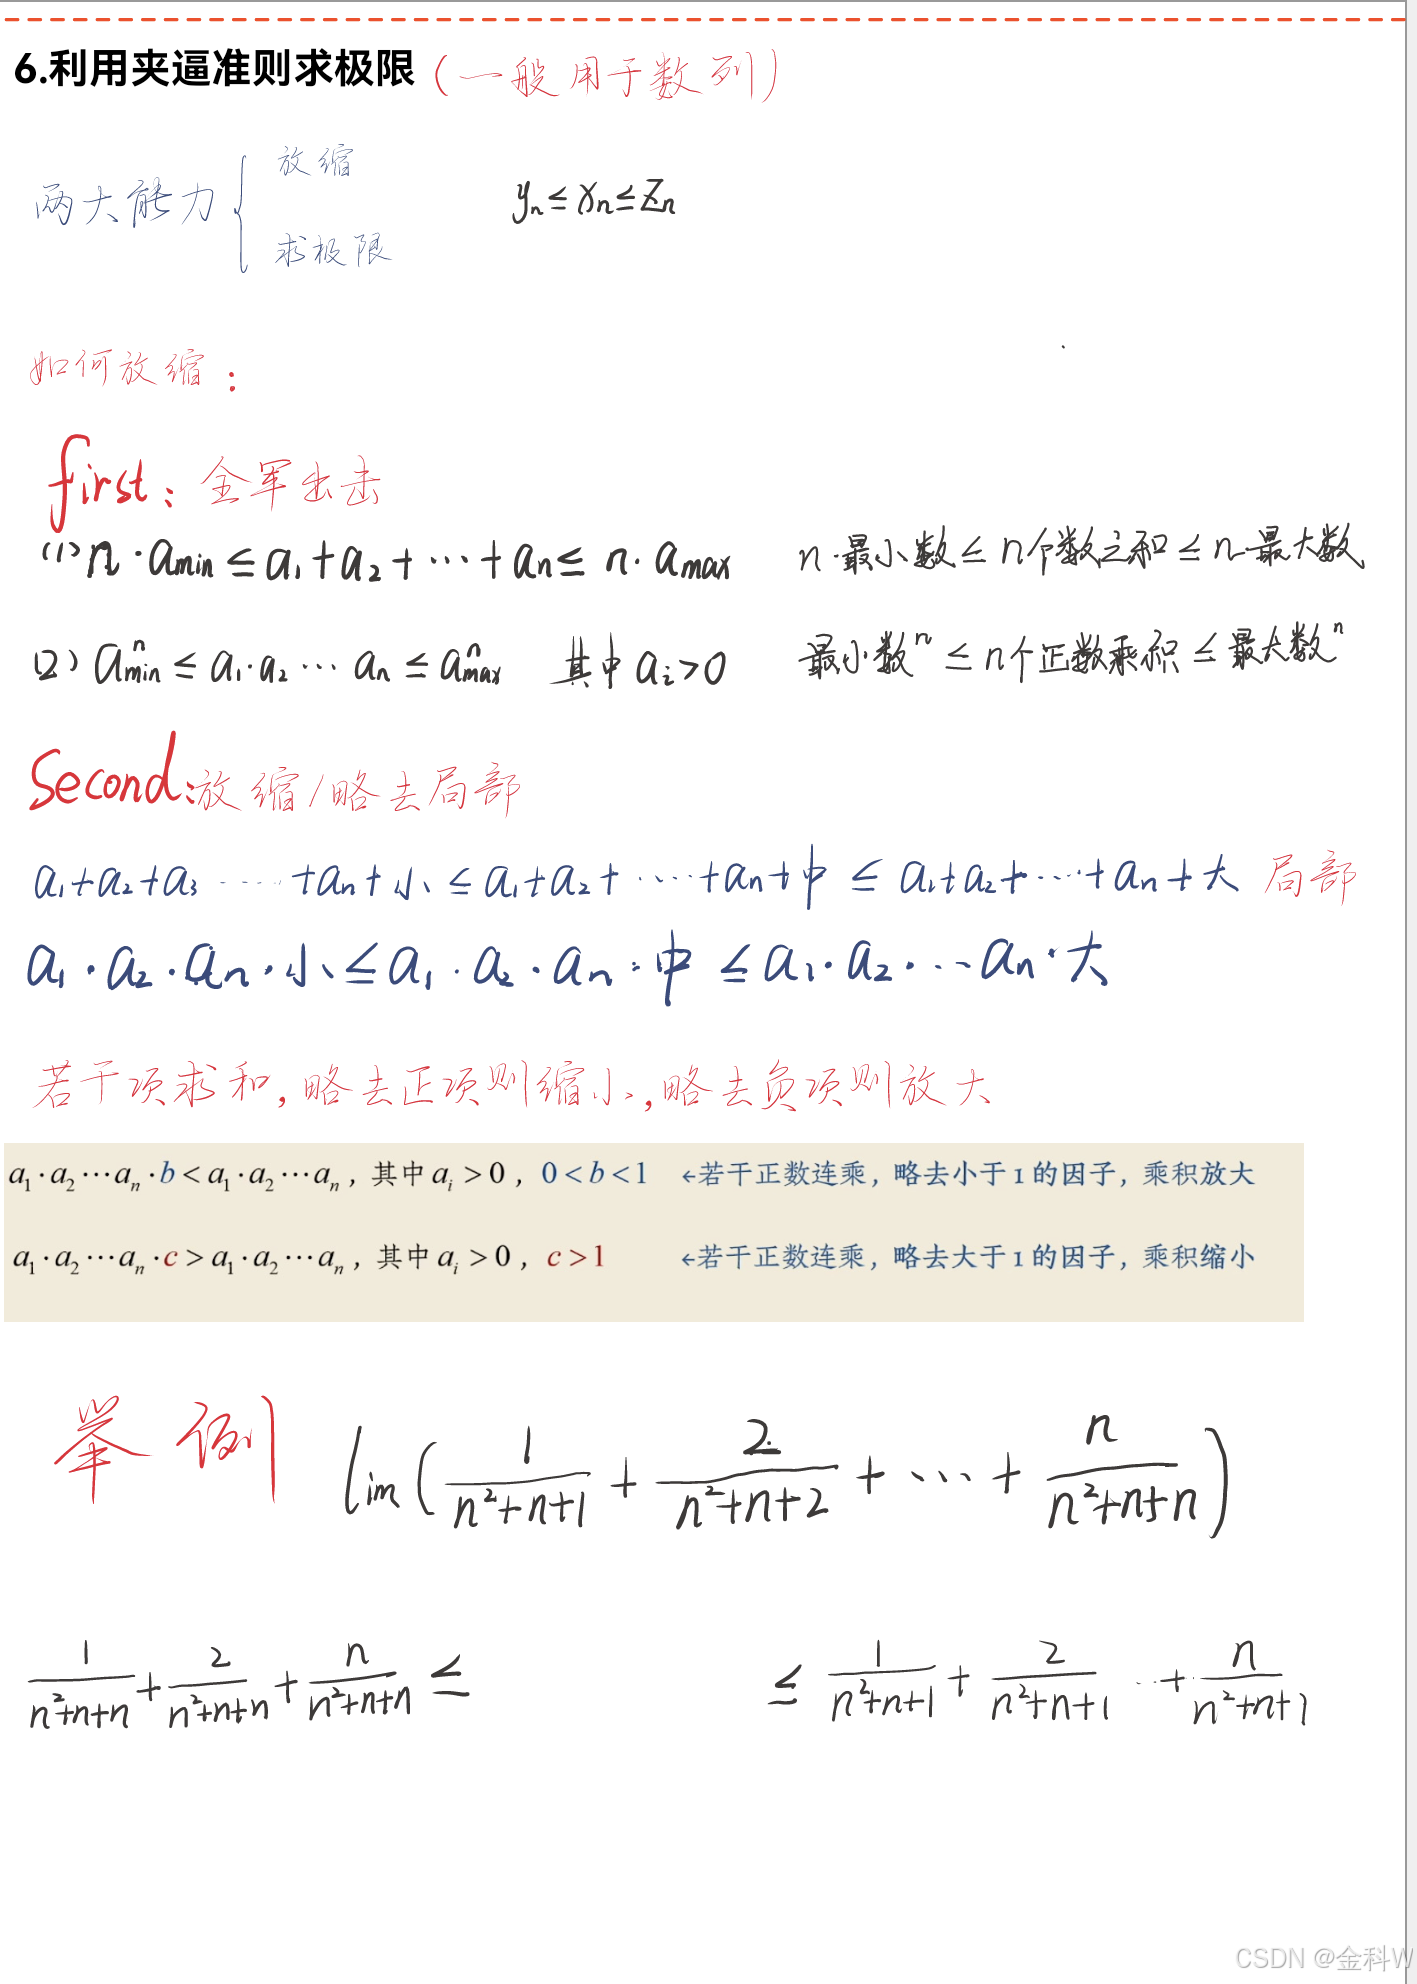 6.利用夹逼准则求极限(一般用于数列)
放缩
两大能力{ yₙ≤xₙ≤zₙ
求极限
如何放缩:
first: 全军出击
(1) n·aₘᵢₙ≤a₁+a₂+…+aₙ≤n·aₘₐₓ n·最小数≤n个数之和≤n·最大数
(2) aⁿₘᵢₙ≤a₁·a₂…aₙ≤aⁿₘₐₓ 其中aᵢ>0 最小数ⁿ≤n个正数乘积≤最大数ⁿ
Second:放缩/略去局部
a₁+a₂+a₃……+aₙ+小≤a₁+a₂+……+aₙ+中≤a₁+a₂+…+aₙ+大 局部
a₁·a₂·aₙ·小≤a₁·a₂·aₙ·中≤a₁·a₂·…aₙ·大
若干项求和,略去正项则缩小,略去负项则放大
a₁·a₂…aₙ·b<a₁·a₂…aₙ,其中aᵢ>0,0<b<1 ←若干正数连乘,略去小于1的因子,乘积放大
a₁·a₂…aₙ·c>a₁·a₂…aₙ,其中aᵢ>0,c>1 ←若干正数连乘,略去大于1的因子,乘积缩小
举例 lim(1/(n²+n+1)+2/(n²+n+2)+…+n/(n²+n+n))
1/(n²+n+n)+2/(n²+n+n)+n/(n²+n+n)≤ ≤1/(n²+n+1)+2/(n²+n+1)…+n/(n²+n+1)
CSDN @金科W